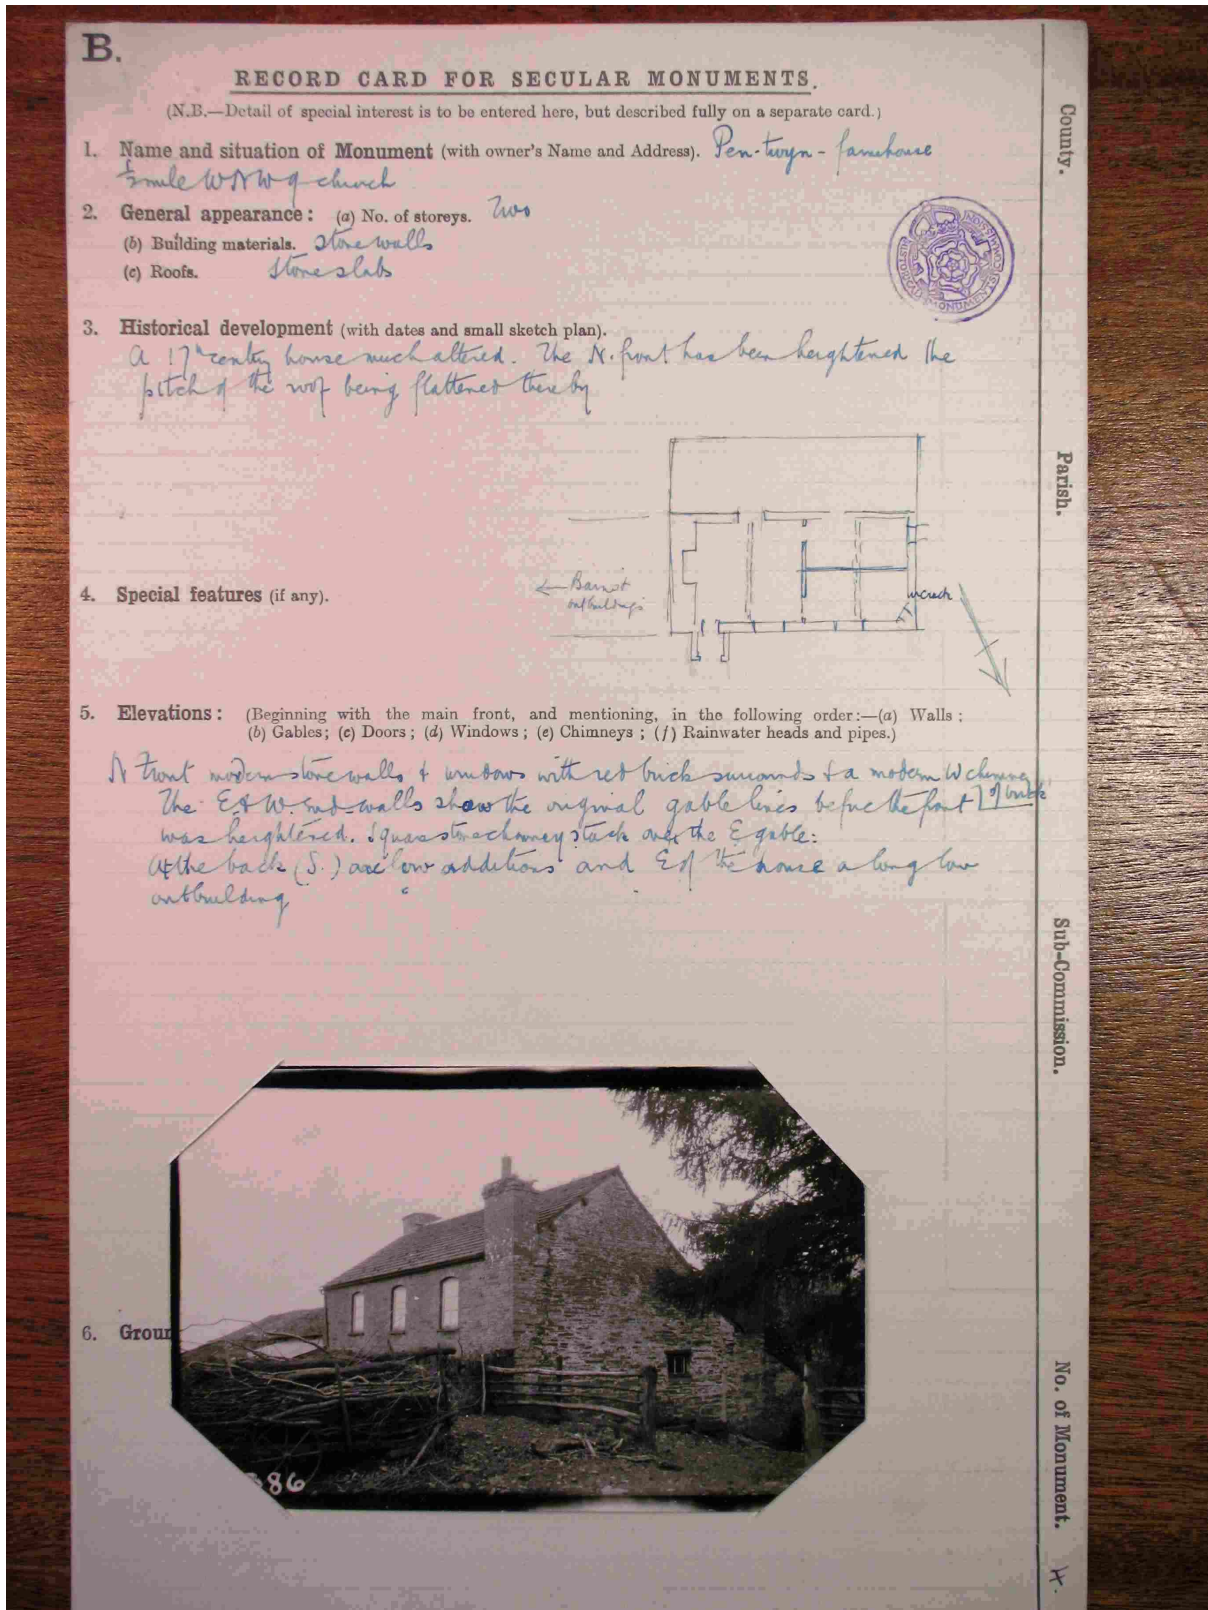 B.
RECORD CARD FOR SECULAR MONUMENTS.
(N.B.—Detail of special interest is to be entered here, but described fully on a separate card.)
1. Name and situation of Monument (with owner's Name and Address). Pen-twyn - farmhouse
½ mile W N W of church
2. General appearance: (a) No. of storeys. Two
(b) Building materials. Stone walls
(c) Roofs. Stone slabs
HISTORICAL MONUMENTS COMMISSION
3. Historical development (with dates and small sketch plan).
A 17th century house much altered. The N. front has been heightened the
pitch of the roof being flattened thereby
← Barn &
outbuildings
4. Special features (if any).
5. Elevations: (Beginning with the main front, and mentioning, in the following order:—(a) Walls;
(b) Gables; (c) Doors; (d) Windows; (e) Chimneys; (f) Rainwater heads and pipes.)
N Front modern stone walls & windows with red brick surrounds & a modern W chimney
of brick
The E & W. end walls show the original gable lines before the front
was heightened. Square stone chimney stack over the E gable:
At the back (S.) are low additions and E of the house a long low
outbuilding
6. Groun
86
County.
Parish.
Sub-Commission.
No. of Monument. 4.